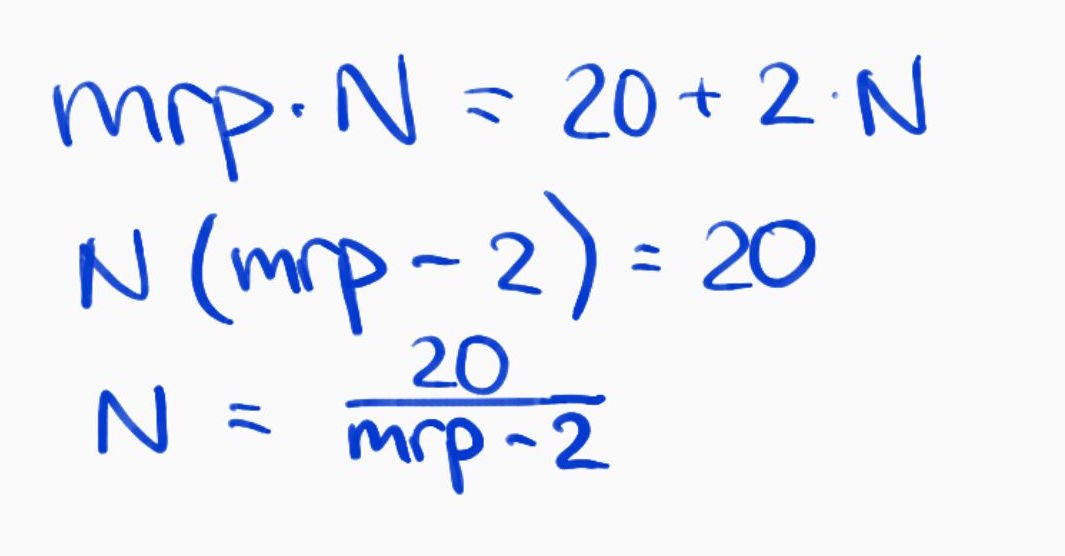 mrp · N = 20 + 2 · N
N (mrp - 2) = 20
N = 20 / mrp - 2